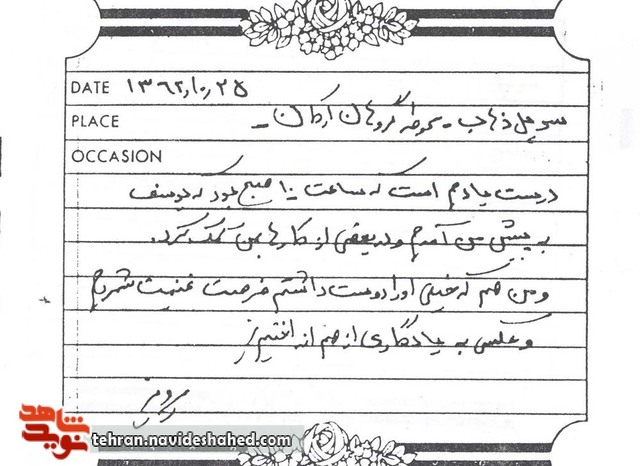 DATE ۱۳۶۲،۱۰،۲۵
PLACE سرپل ذهاب - محوطه گروهان ارکان -
OCCASION
درست یادم است که ساعت ۱۰ صبح بود که یوسف
به پیش من آمد و در بعضی از کارها بمن کمک کرد.
و من هم که خیلی او را دوست داشتم فرصت غنیمت شمردم
و عکسی به یادگاری از هم انداختیم
شاهد
نوید
tehran.navideshahed.com